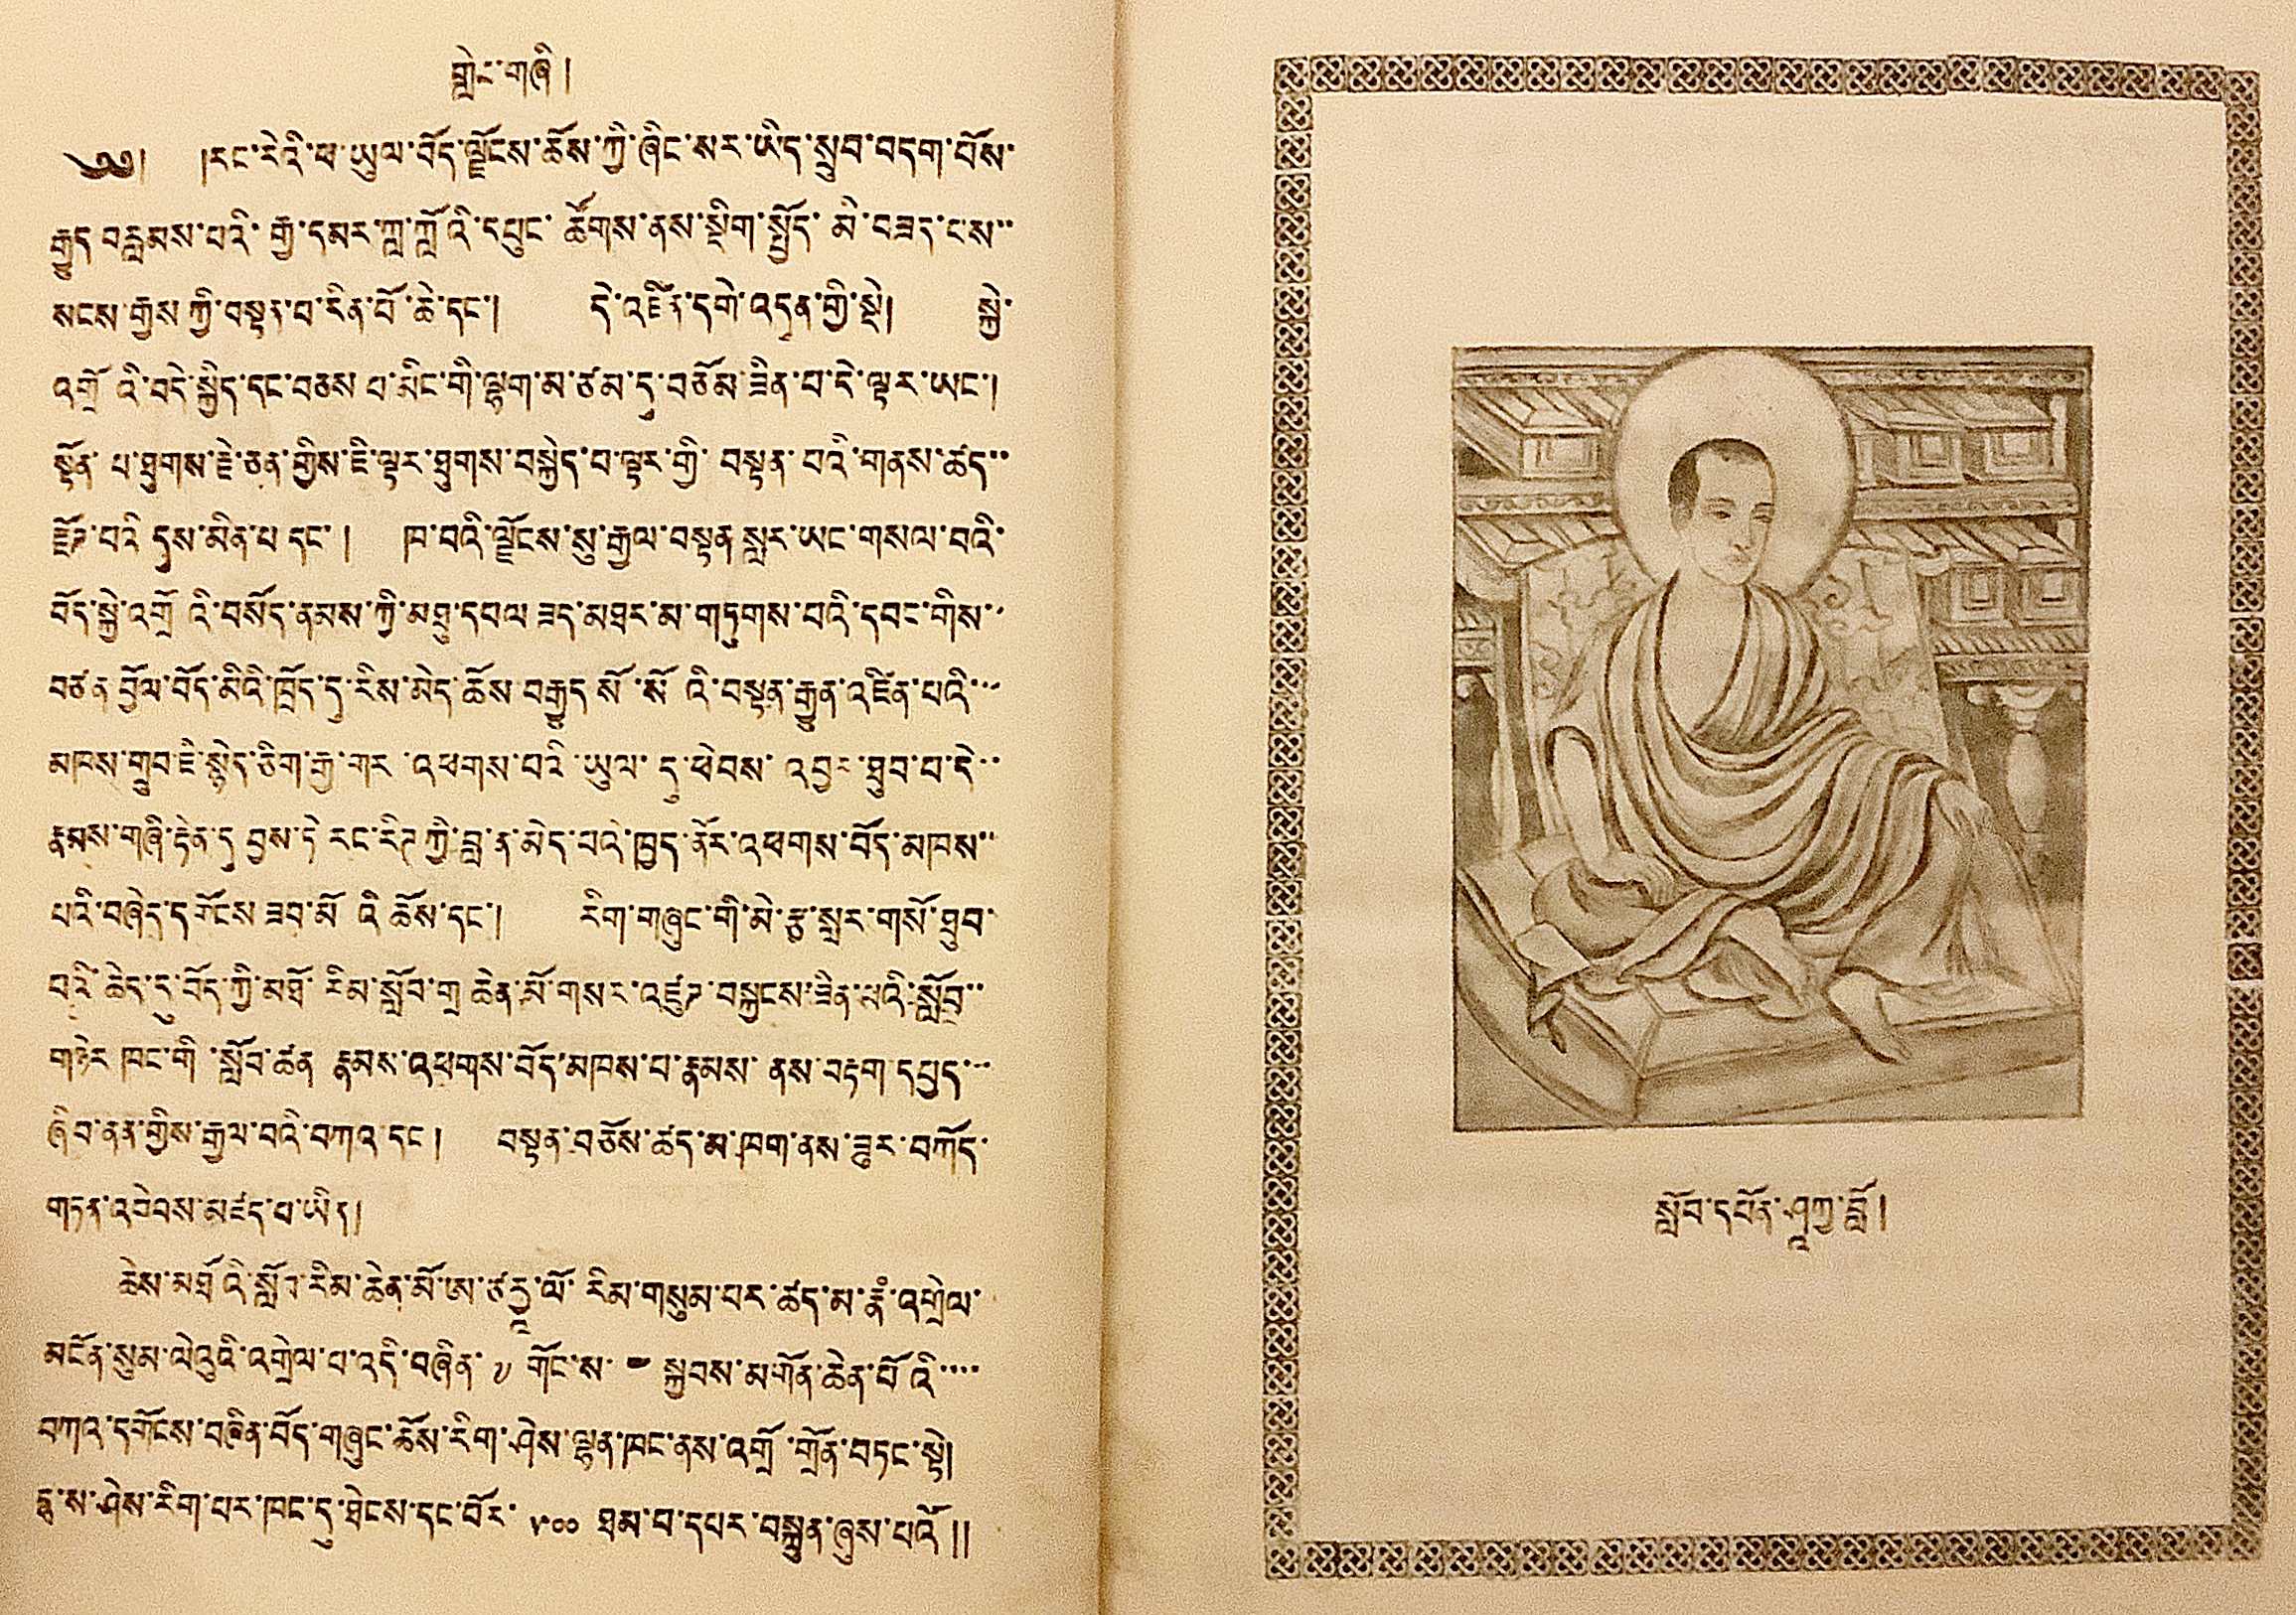 གླེང་གཞི །
༄༅། །རང་རེའི་ཕ་ཡུལ་བོད་ལྗོངས་ཆོས་ཀྱི་ཞིང་སར་ཡིད་སྲུབ་བདག་པོས་
རྒྱུད་བརླམས་པའི་རྒྱ་དམར་ཀླ་ཀློའི་དཔུང་ཚོགས་ནས་སྡིག་སྤྱོད་མི་བཟད་ངས་
སངས་རྒྱས་ཀྱི་བསྟན་པ་རིན་པོ་ཆེ་དང་། དེ་འཛིན་དགེ་འདུན་གྱི་སྡེ། སྐྱེ་
འགྲོའི་བདེ་སྐྱིད་དང་བཅས་པ་མིང་གི་ལྷག་མ་ཙམ་དུ་བཅོམ་ཟིན་པ་དེ་ལྟར་ཡང་།
སྟོན་པ་ཐུགས་རྗེ་ཅན་གྱིས་ཇི་ལྟར་ཐུགས་བསྐྱེད་པ་ལྟར་གྱི་བསྟན་པའི་གནས་ཚད་
རྫོཊ་པའི་དུས་མིན་པ་དང་། ཁ་བའི་ལྗོངས་སུ་རྒྱལ་བསྟན་སླར་ཡང་གསལ་བའི་
བོད་སྐྱེ་འགྲོའི་བསོད་ནམས་ཀྱི་མཐུ་དཔལ་ཟད་མཐར་མ་གཏུགས་པའི་དབང་གིས་
བཙན་བྱོལ་བོད་མིའི་ཁྲོད་དུ་རིས་མེད་ཆོས་བརྒྱུད་སོ་སོའི་བསྟན་རྒྱུན་འཛིན་པའི་
མཁས་གྲུབ་ཇི་སྙེད་ཅིག་རྒྱ་གར་འཕགས་པའི་ཡུལ་དུ་ཕེབས་འབྱར་ཐུབ་པ་དེ་
རྣམས་གཞི་རྟེན་དུ་བྱས་ཏེ་རང་རིཊ་ཀྱི་བླ་ན་མེད་པའི་ཁྱད་ནོར་འཕགས་བོད་མཁས་
པའི་བཞེད་དགོངས་ཟབ་མོའི་ཆོས་དང་། རིག་གཞུང་གི་མེ་རྩ་སླར་གསོ་ཐུབ་
པའི་ཆེད་དུ་བོད་ཀྱི་མཐོ་རིམ་སློབ་གྲྭ་ཆེན་མོ་གསར་འཛུཊ་བསྐྱངས་ཟིན་པའི་སློབ་
གཉེར་ཁང་གི་སློབ་ཚན་རྣམས་འཕགས་བོད་མཁས་པ་རྣམས་ནས་བརྟག་དཔྱད་
ཞིབ་ནན་གྱིས་རྒྱལ་བའི་བཀའ་དང་། བསྟན་བཅོས་ཚད་མ་ཁག་ནས་ཟུར་བཀོད་
གཏན་འབེབས་མཛད་པ་ཡིན།
ཆེས་མཐོའི་སློབ་རིམ་ཆེན་མོ་ཨ་ཙརྱ་ལོ་རིམ་གསུམ་པར་ཚད་མ་རྣཾ་འགྲེལ་
མངོན་སུམ་ལེའུའི་འགྲེལ་པ་འདི་བཞིན་༧གོང་ས་ སྐྱབས་མགོན་ཆེན་པོའི་
བཀའ་དགོངས་བཞིན་བོད་གཞུང་ཆོས་རིག་ཤེས་ལྷན་ཁང་ནས་འགྲོ་གྲོན་བཏང་སྟེ།
དྷ་ས་ཤེས་རིག་པར་ཁང་དུ་ཐེངས་དང་པོར་ ༥༠༠ ཐམ་པ་དཔར་བསྐྲུན་ཞུས་པའོ།།
སློབ་དཔོན་ཤཱཀྱ་བློ།